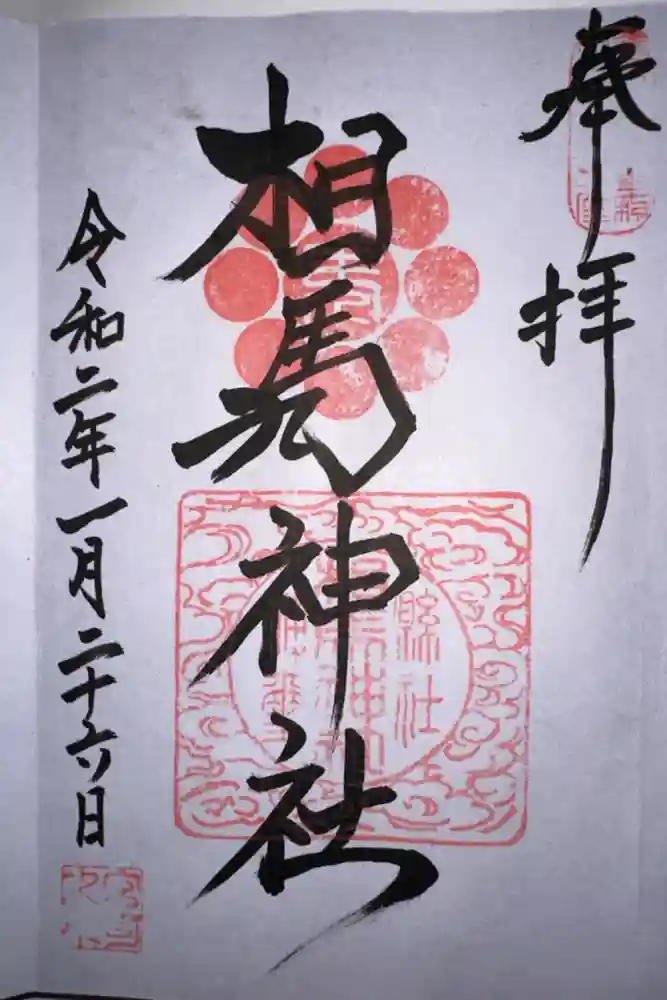 奉拝
相馬神社
令和二年一月二十六日
縣社